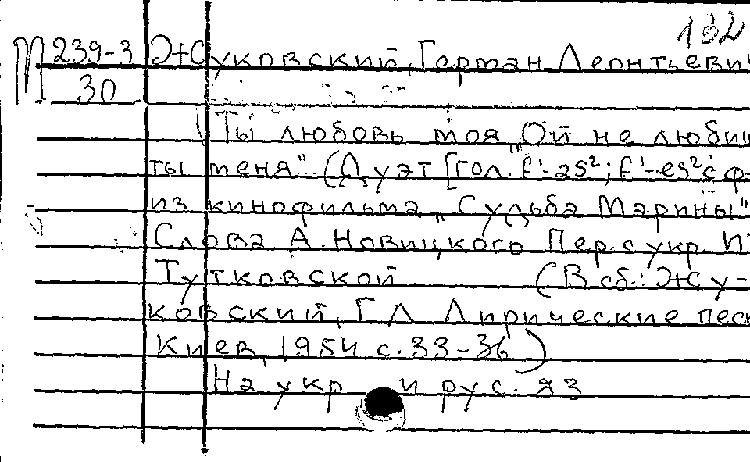 132
М 239-3 Жуковский, Герман Леонтьеви
30
"Ты любовь моя, "Ой не люби
ты меня" (Дуэт [гол. f¹-as²; f¹-es² с ф-
из кинофильма "Судьба Марины"
Слова А. Новицкого Пер. с укр.
Тутковской (В сб.: Жу-
ковский, Г Л Лирические пес
Киев, 1954 с. 33-36)
На укр и рус. яз